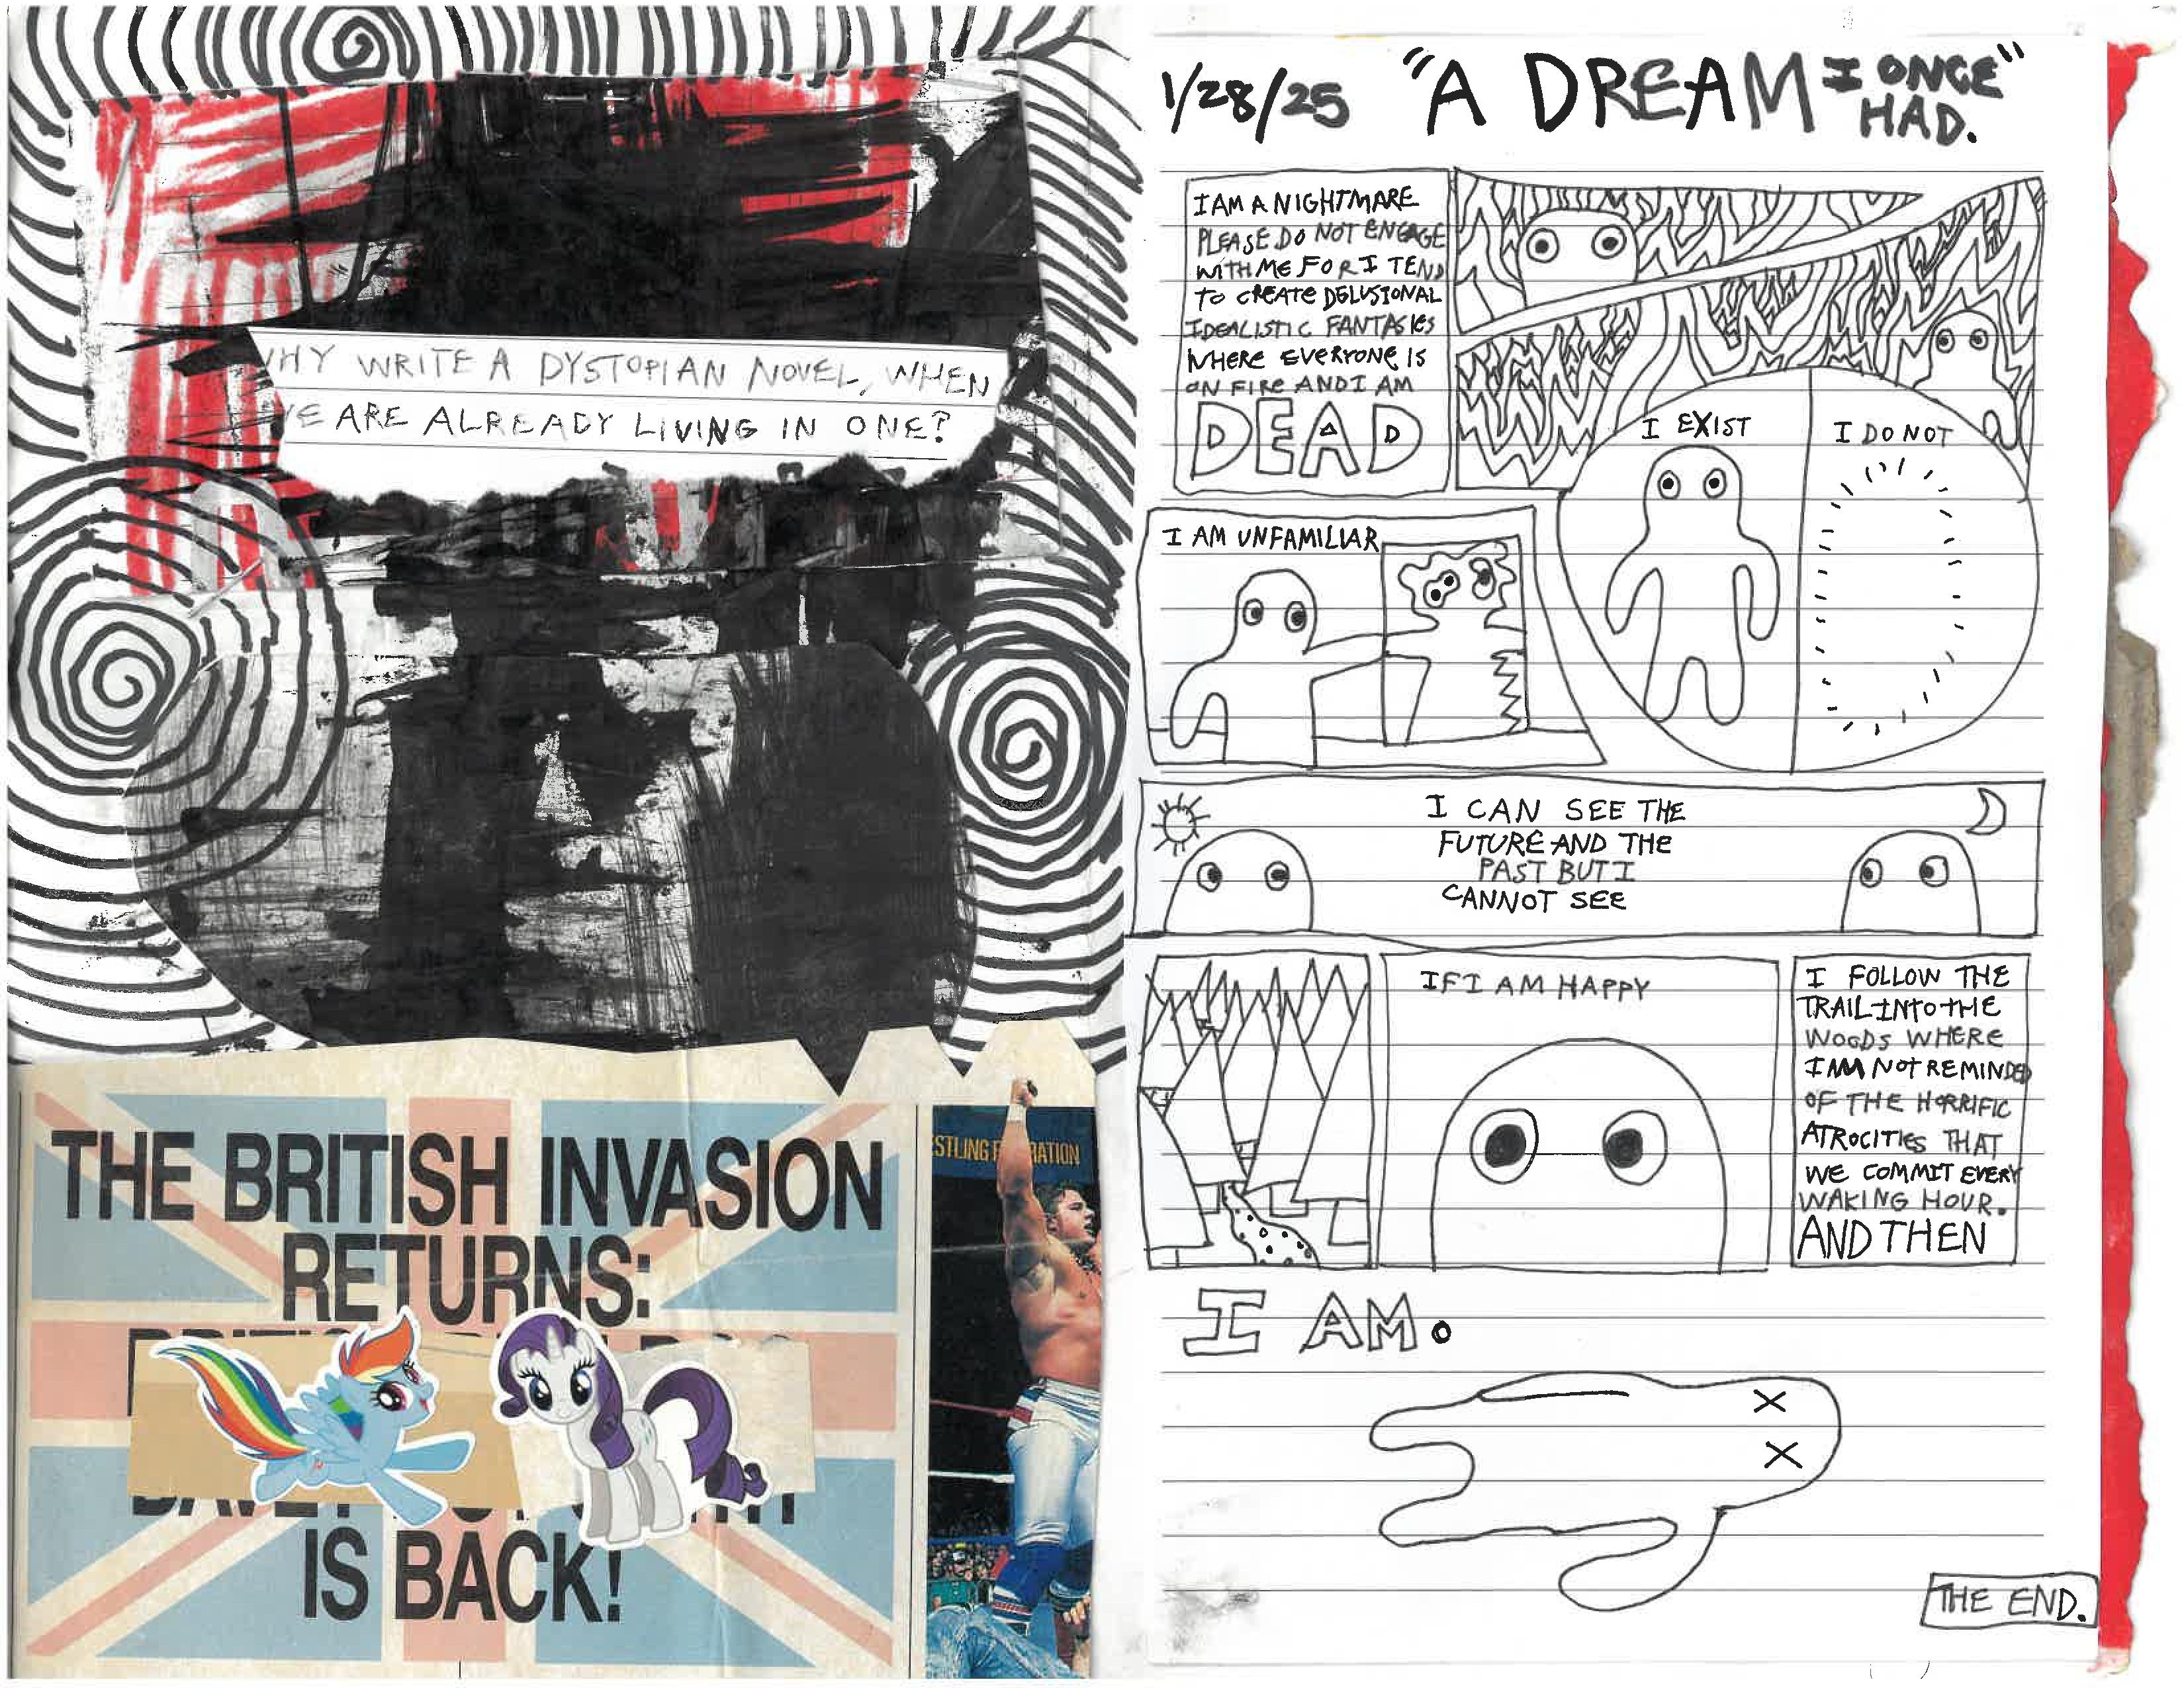 WHY WRITE A DYSTOPIAN NOVEL, WHEN
WE ARE ALREADY LIVING IN ONE?
THE BRITISH INVASION
RETURNS:
IS BACK!
1/28/25 "A DREAM I ONCE
HAD."
I AM A NIGHTMARE
PLEASE DO NOT ENGAGE
WITH ME FOR I TEND
TO CREATE DELUSIONAL
IDEALISTIC FANTASIES
WHERE EVERYONE IS
ON FIRE AND I AM
DEAD
I EXIST
I DO NOT
I AM UNFAMILIAR
I CAN SEE THE
FUTURE AND THE
PAST BUT I
CANNOT SEE
IF I AM HAPPY
I FOLLOW THE
TRAIL INTO THE
WOODS WHERE
I AM NOT REMINDED
OF THE HORRIFIC
ATROCITIES THAT
WE COMMIT EVERY
WAKING HOUR.
AND THEN
I AM.
THE END.